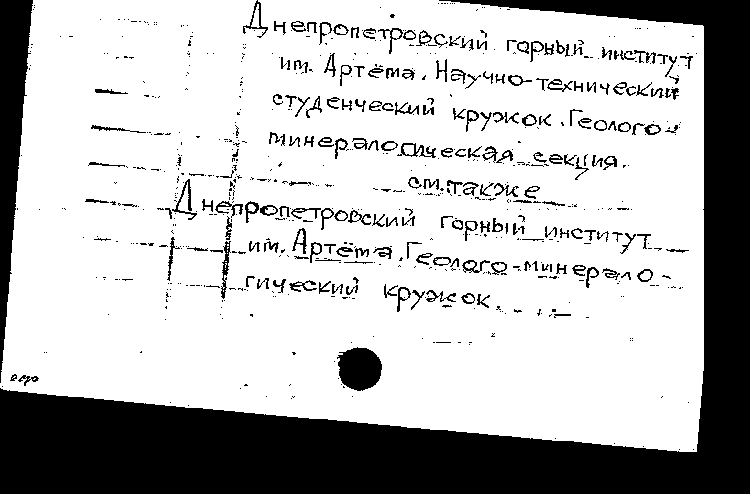 Днепропетровский горный институт
им. Артёма. Научно-технический
студенческий кружок. Геолого-
минералогическая секция.
см. также
Днепропетровский горный институт
им. Артёма. Геолого-минерало-
гический кружок.